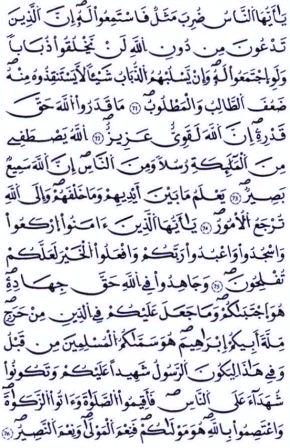 يَٰٓأَيُّهَا اَ۬لنَّاسُ ضُرِبَ مَثَلٞ فَاسْتَمِعُواْ لَهُۥٓ إِنَّ اَ۬لذِينَ
تَدْعُونَ مِن دُونِ اِ۬للَّهِ لَنْ يَّخْلُقُواْ ذُبَاباٗ
وَلَوِ اِ۪جْتَمَعُواْ لَهُۥ وَإِنْ يَّسْلُبْهُمُ اُ۬لذُّبَابُ شَيْـٔاٗ لَّا يَسْتَنقِذُوهُ مِنْهُ
ضَعُفَ اَ۬لطَّالِبُ وَالْمَطْلُوبُ ٧١ مَا قَدَرُواْ اُ۬للَّهَ حَقَّ
قَدْرِهِۦٓ إِنَّ اَ۬للَّهَ لَقَوِيٌّ عَزِيزٌ ٧٢ اِ۬للَّهُ يَصْطَفِے
مِنَ اَ۬لْمَلَٰٓئِكَةِ رُسُلاٗ وَمِنَ اَ۬لنَّاسِ إِنَّ اَ۬للَّهَ سَمِيعُۢ
بَصِيرٞ ٧٣ يَعْلَمُ مَا بَيْنَ أَيْدِيهِمْ وَمَا خَلْفَهُمْ وَإِلَى اَ۬للَّهِ
تُرْجَعُ اُ۬لْأُمُورُ ٧٤ يَٰٓأَيُّهَا اَ۬لذِينَ ءَامَنُواْ اُ۪رْكَعُواْ
وَاسْجُدُواْ وَاعْبُدُواْ رَبَّكُمْ وَافْعَلُواْ اُ۬لْخَيْرَ لَعَلَّكُمْ
تُفْلِحُونَ ٧٥ وَجَٰهِدُواْ فِے اِ۬للَّهِ حَقَّ جِهَادِهِۦ
هُوَ اَ۪جْتَبَىٰكُمْ وَمَا جَعَلَ عَلَيْكُمْ فِے اِ۬لدِّينِ مِنْ حَرَجٖ
مِّلَّةَ أَبِيكُمْ إِبْرَٰهِيمَ هُوَ سَمَّىٰكُمُ اُ۬لْمُسْلِمِينَ مِن قَبْلُ
وَفِے هَٰذَا لِيَكُونَ اَ۬لرَّسُولُ شَهِيداً عَلَيْكُمْ وَتَكُونُواْ
شُهَدَآءَ عَلَى اَ۬لنَّاسِ فَأَقِيمُواْ اُ۬لصَّلَوٰةَ وَءَاتُواْ اُ۬لزَّكَوٰةَ
وَاعْتَصِمُواْ بِاللَّهِ هُوَ مَوْلَىٰكُمْ فَنِعْمَ اَ۬لْمَوْلَىٰ وَنِعْمَ اَ۬لنَّصِيرُ ٧٦